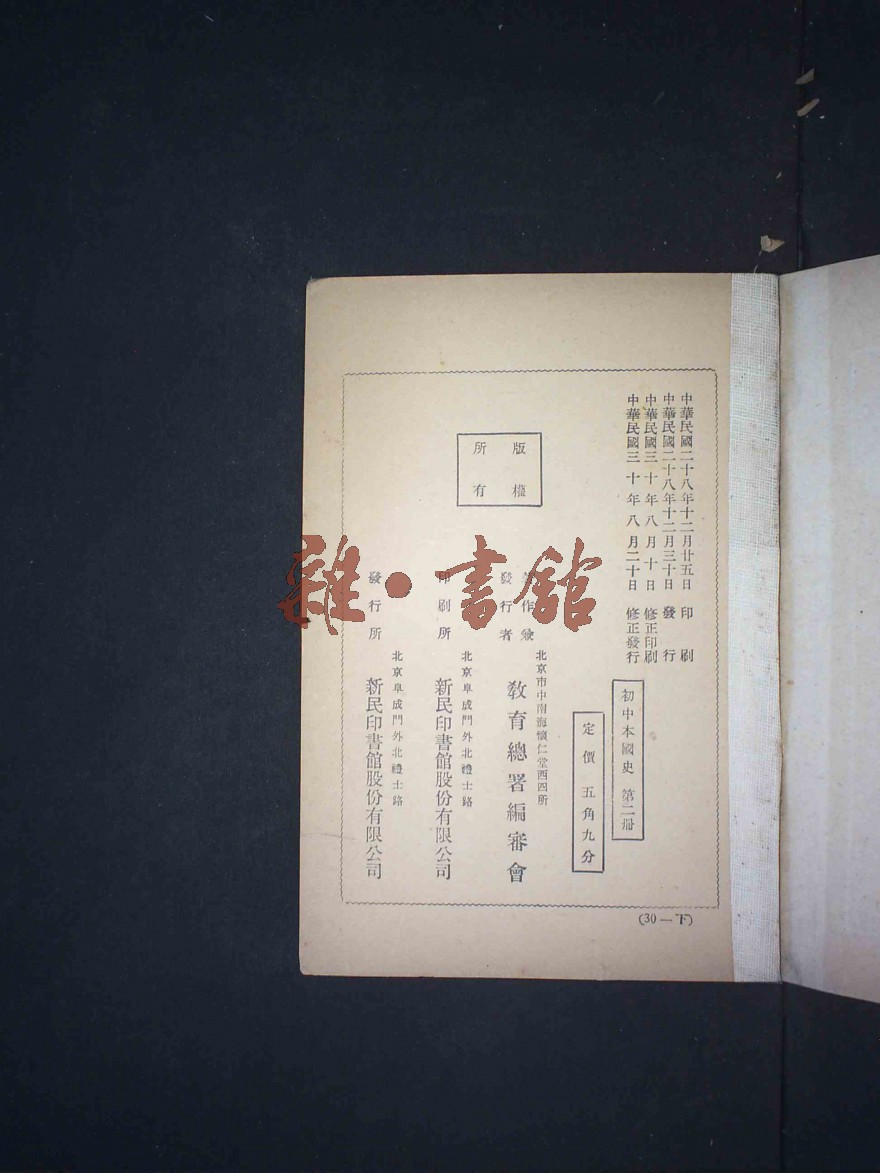 中華民國二十八年十二月廿五日 印刷
中華民國二十八年十二月三十日 發行
中華民國三十年八月十日 修正印刷
中華民國三十年八月二十日 修正發行
初中本國史 第二冊
定價 五角九分
版權
所有
著作兼
發行者
北京市中南海懷仁堂西四所
教育總署編審會
印刷所
北京阜成門外北禮士路
新民印書館股份有限公司
發行所
北京阜成門外北禮士路
新民印書館股份有限公司
(30—下)
雜·書館